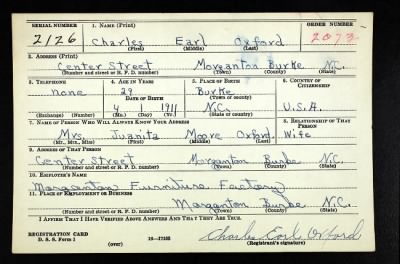 SERIAL NUMBER 1. NAME (Print) ORDER NUMBER
2126 Charles Earl Oxford 2073
(First) (Middle) (Last)
2. ADDRESS (Print)
Center Street Morganton Burke N.C.
(Number and street or R. F. D. number) (Town) (County) (State)
3. TELEPHONE 4. AGE IN YEARS 5. PLACE OF BIRTH 6. COUNTRY OF CITIZENSHIP
none 29 Burke
DATE OF BIRTH (Town or county)
4 1911 N.C. U.S.A.
(Exchange) (Number) (Mo.) (Day) (Yr.) (State or country)
7. NAME OF PERSON WHO WILL ALWAYS KNOW YOUR ADDRESS 8. RELATIONSHIP OF THAT PERSON
Mrs. Juanita Moore Oxford Wife
(Mr., Mrs., Miss) (First) (Middle) (Last)
9. ADDRESS OF THAT PERSON
Center Street Morganton Burke N.C.
(Number and street or R. F. D. number) (Town) (County) (State)
10. EMPLOYER'S NAME
Morganton Furniture Factory
11. PLACE OF EMPLOYMENT OR BUSINESS
Morganton Burke N.C.
(Number and street or R. F. D. number) (Town) (County) (State)
I AFFIRM THAT I HAVE VERIFIED ABOVE ANSWERS AND THAT THEY ARE TRUE.
REGISTRATION CARD
D. S. S. Form 1 (over) Charles Earl Oxford
(Registrant's signature)